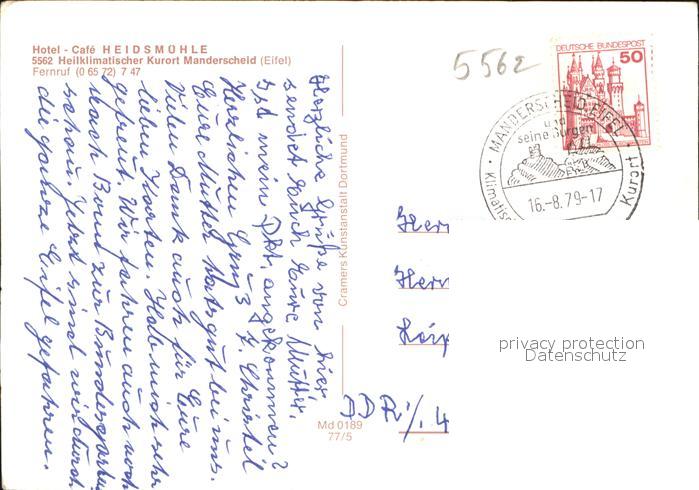 Hotel - Café HEIDSMÜHLE
5562 Heilklimatischer Kurort Manderscheid (Eifel)
Fernruf (0 65 72) 7 47
5562
DEUTSCHE BUNDESPOST
50
MANDERSCHEID/EIFEL
und
seine Burgen
16.-8.79-17
Klimatisc
Kurort
Herzliche Grüße von hier,
sendet Euch Eure Mutter.
Ist mein Pkt. angekommen?
Herzlichen Gruß Christel
Eure Mutter hats gut bei uns.
Vielen Dank auch für Eure
lieben Karten. Habe mich sehr
gefreut. Wir fahren auch noch
nach Bonn zur Bundesgarten
schau. Jetzt sind wir durch
die ganze Eifel gefahren.
Cramers Kunstanstalt Dortmund
Md 0189
77/5
Herr
Herr
Leip
DDR
privacy protection
Datenschutz